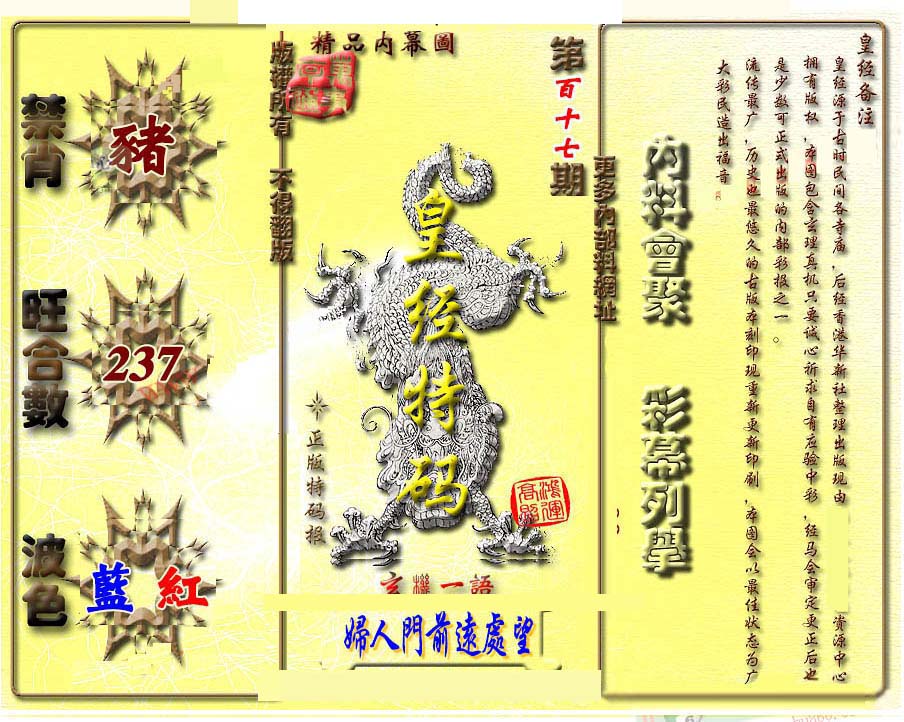 皇经备注
皇经源于古时民间各寺庙，后经香港华新社整理出版现由 资源中心
拥有版权，本图包含玄理真机只要诚心祈求自有应验中彩，经马会审定更正后也
是少数可正式出版的内部彩报之一。
流传最广，历史也最悠久的古版本刻印现重新更新印刷，本图会以最佳状态为广
大彩民造出福音
内料會聚
彩幕列舉
更多內部料網址
第百十七期
精品内幕圖
版權所有 不得翻版
皇经特码
正版特码报
鴻運
玄機一語
婦人門前遠處望
禁肖
豬
旺合數
237
波色
藍 紅